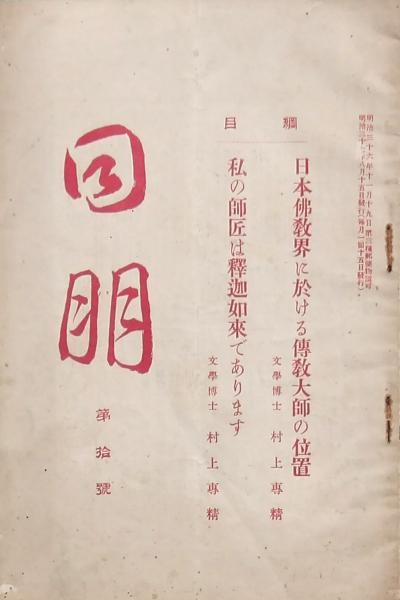 明治三十六年十一月十九日第三種郵便物認可
八月十五日發行(毎月一回十五日發行)
綱目
日本佛敎界に於ける傳敎大師の位置
文學博士 村上專精
私の師匠は釋迦如來であります
文學博士 村上專精
同明
第拾號